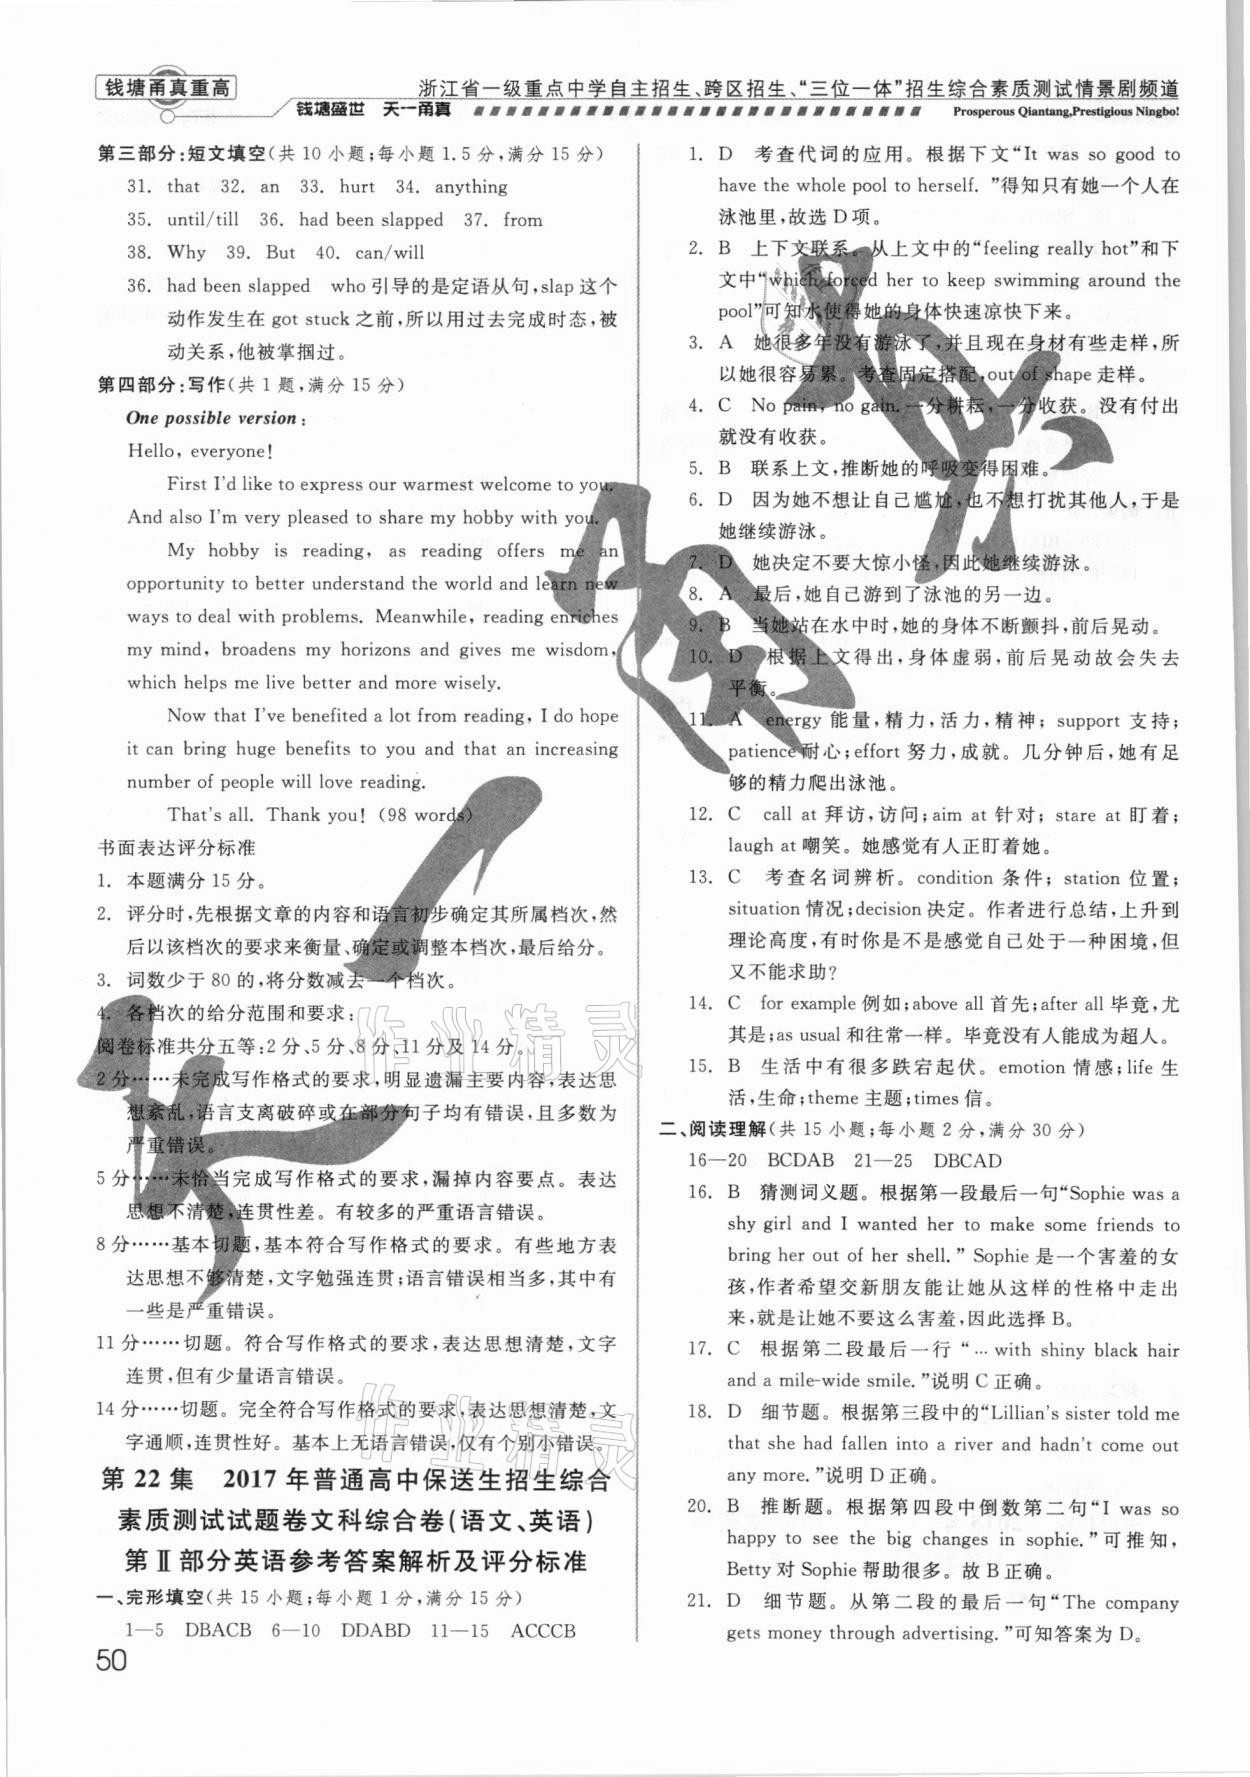 钱塘甬真重高
浙江省一级重点中学自主招生、跨区招生、“三位一体”招生综合素质测试情景剧频道
钱塘盛世 天一甬真
Prosperous Qiantang,Prestigious Ningbo!
第三部分:短文填空(共 10 小题;每小题 1.5 分,满分 15 分)
31. that 32. an 33. hurt 34. anything
35. until/till 36. had been slapped 37. from
38. Why 39. But 40. can/will
36. had been slapped who引导的是定语从句,slap 这个
动作发生在 got stuck 之前,所以用过去完成时态,被
动关系,他被掌掴过。
第四部分:写作(共 1 题,满分 15 分)
One possible version:
Hello, everyone!
First I'd like to express our warmest welcome to you.
And also I'm very pleased to share my hobby with you.
My hobby is reading, as reading offers me an
opportunity to better understand the world and learn new
ways to deal with problems. Meanwhile, reading enriches
my mind, broadens my horizons and gives me wisdom,
which helps me live better and more wisely.
Now that I've benefited a lot from reading, I do hope
it can bring huge benefits to you and that an increasing
number of people will love reading.
That's all. Thank you! (98 words)
书面表达评分标准
1. 本题满分 15 分。
2. 评分时,先根据文章的内容和语言初步确定其所属档次,然
后以该档次的要求来衡量、确定或调整本档次,最后给分。
3. 词数少于 80 的,将分数减去一个档次。
4. 各档次的给分范围和要求:
阅卷标准共分五等:2 分、5 分、8 分、11 分及 14 分。
2 分……未完成写作格式的要求,明显遗漏主要内容,表达思
想紊乱,语言支离破碎或在部分句子均有错误,且多数为
严重错误。
5 分……未恰当完成写作格式的要求,漏掉内容要点。表达
思想不清楚,连贯性差。有较多的严重语言错误。
8 分……基本切题,基本符合写作格式的要求。有些地方表
达思想不够清楚,文字勉强连贯;语言错误相当多,其中有
一些是严重错误。
11 分……切题。符合写作格式的要求,表达思想清楚,文字
连贯,但有少量语言错误。
14 分……切题。完全符合写作格式的要求,表达思想清楚,文
字通顺,连贯性好。基本上无语言错误,仅有个别小错误。
第 22 集 2017 年普通高中保送生招生综合
素质测试试题卷文科综合卷(语文、英语)
第Ⅱ部分英语参考答案解析及评分标准
一、完形填空(共 15 小题;每小题 1 分,满分 15 分)
1—5 DBACB 6—10 DDABD 11—15 ACCCB
50
1. D 考查代词的应用。根据下文“It was so good to
have the whole pool to herself. ”得知只有她一个人在
泳池里,故选 D 项。
2. B 上下文联系。从上文中的“feeling really hot”和下
文中“which forced her to keep swimming around the
pool”可知水使得她的身体快速凉快下来。
3. A 她很多年没有游泳了,并且现在身材有些走样,所
以她很容易累。考查固定搭配,out of shape 走样。
4. C No pain, no gain. 一分耕耘,一分收获。没有付出
就没有收获。
5. B 联系上文,推断她的呼吸变得困难。
6. D 因为她不想让自己尴尬,也不想打扰其他人,于是
她继续游泳。
7. D 她决定不要大惊小怪,因此她继续游泳。
8. A 最后,她自己游到了泳池的另一边。
9. B 当她站在水中时,她的身体不断颤抖,前后晃动。
10. D 根据上文得出,身体虚弱,前后晃动故会失去
平衡。
11. A energy 能量,精力,活力,精神; support 支持;
patience耐心;effort 努力,成就。几分钟后,她有足
够的精力爬出泳池。
12. C call at 拜访,访问;aim at 针对; stare at 盯着;
laugh at 嘲笑。她感觉有人正盯着她。
13. C 考查名词辨析。condition 条件; station 位置;
situation 情况;decision 决定。作者进行总结,上升到
理论高度,有时你是不是感觉自己处于一种困境,但
又不能求助?
14. C for example 例如;above all 首先;after all 毕竟,尤
其是;as usual 和往常一样。毕竟没有人能成为超人。
15. B 生活中有很多跌宕起伏。emotion 情感;life 生
活,生命;theme 主题;times 信。
二、阅读理解(共 15 小题;每小题 2 分,满分 30 分)
16—20 BCDAB 21—25 DBCAD
16. B 猜测词义题。根据第一段最后一句“Sophie was a
shy girl and I wanted her to make some friends to
bring her out of her shell. ” Sophie 是一个害羞的女
孩,作者希望交新朋友能让她从这样的性格中走出
来,就是让她不要这么害羞,因此选择 B。
17. C 根据第二段最后一行 “… with shiny black hair
and a mile-wide smile. ”说明 C 正确。
18. D 细节题。根据第三段中的“Lillian's sister told me
that she had fallen into a river and hadn't come out
any more. ”说明 D 正确。
20. B 推断题。根据第四段中倒数第二句“I was so
happy to see the big changes in sophie. ”可推知,
Betty 对 Sophie 帮助很多。故 B 正确。
21. D 细节题。从第二段的最后一句“The company
gets money through advertising. ”可知答案为 D。
天一甬真
作业精灵
作业精灵